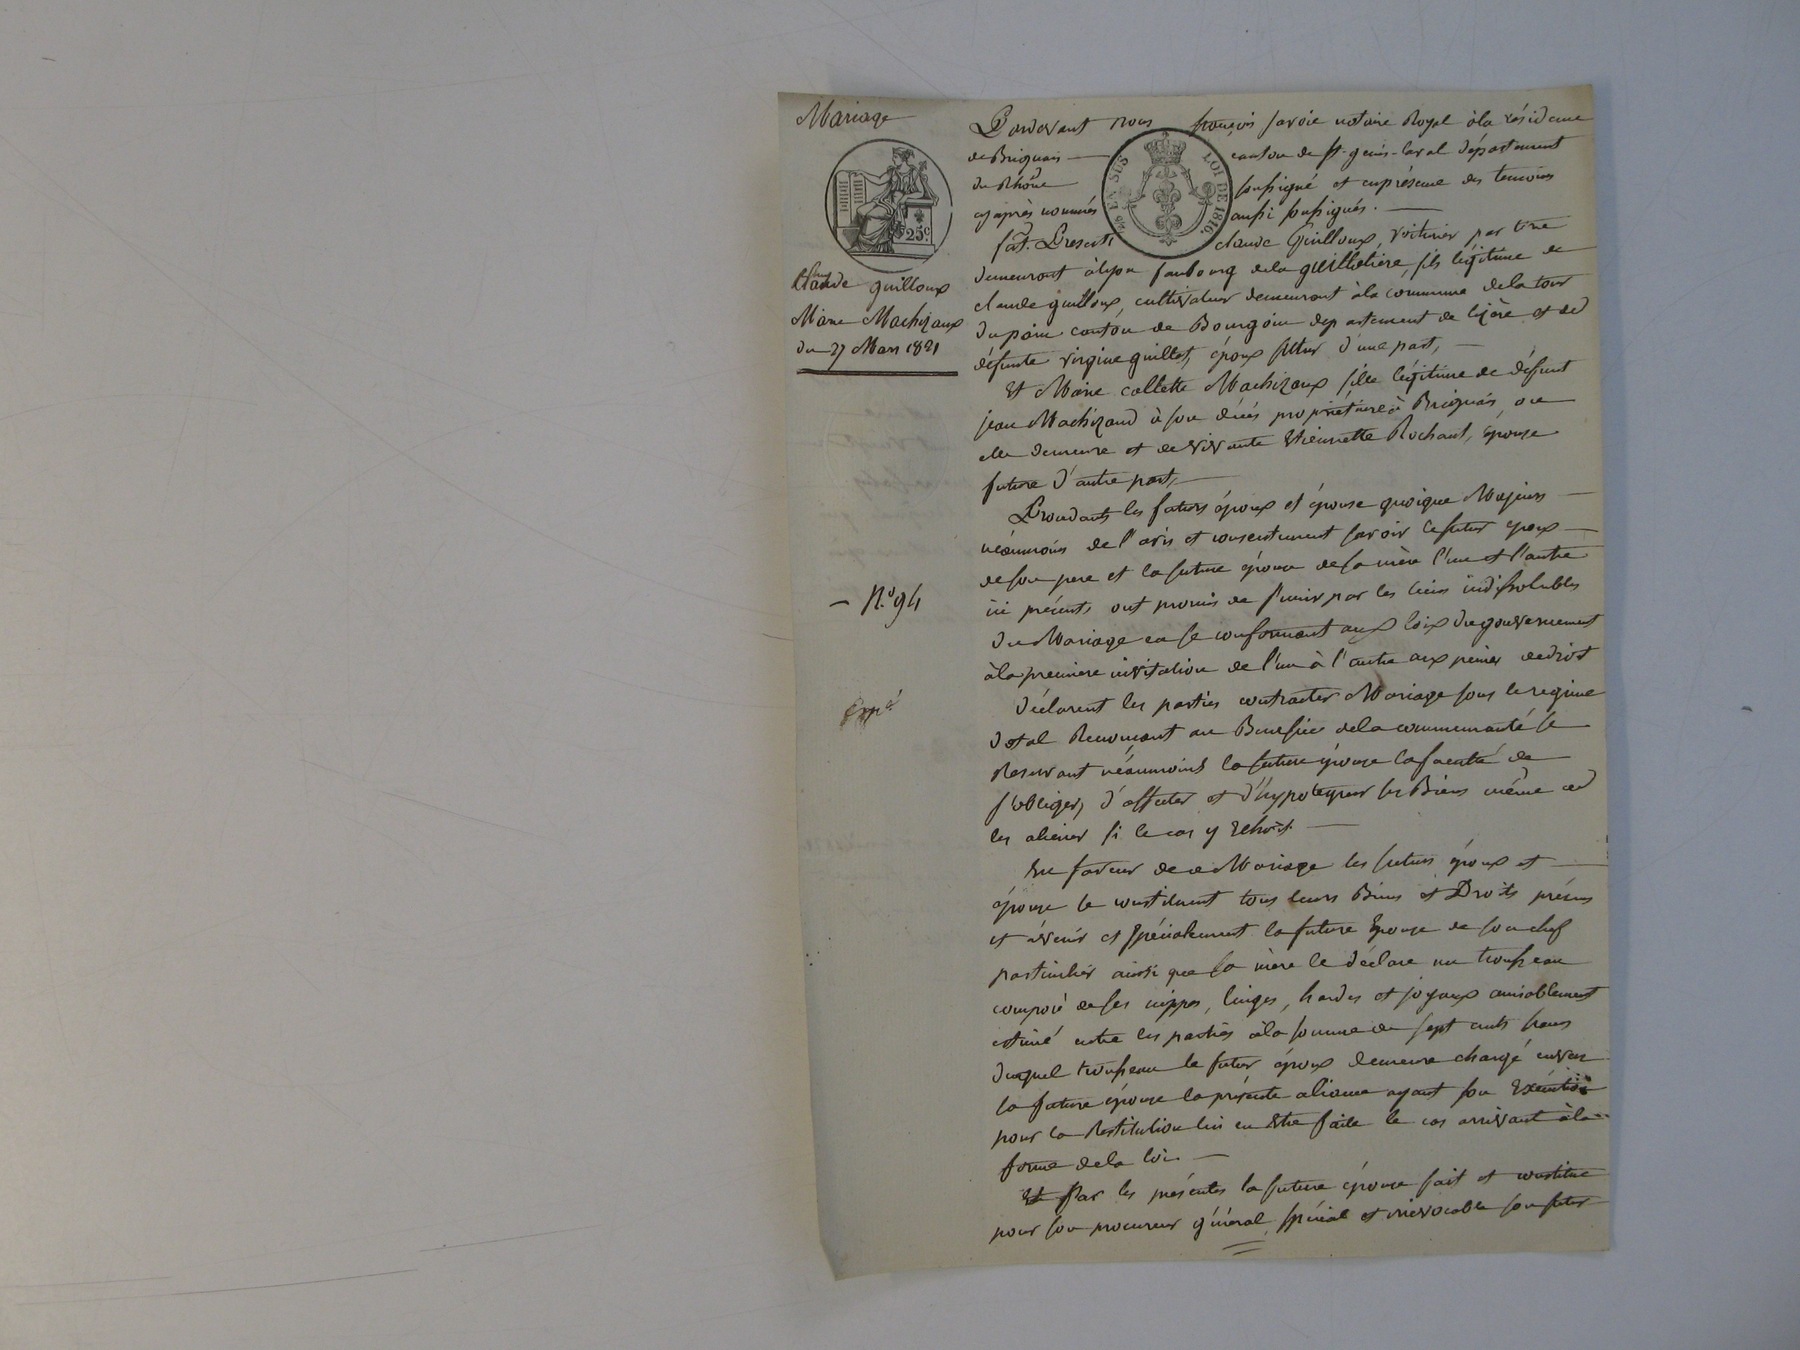 Mariage
25c
Claude guilloux
Marie Machizaux
du 27 Mars 1821
N.º 94
Expé
EN SUS
LOI DE 1816.
Pardevant nous françois favoie notaire Royal à la résidence
de Brignais — canton de St. genis-laval département
du Rhône soussigné et en présence des temoins
cy après nommés aussi soussignés. —
fut Present claude Guilloux, voiturier par terre
demeurant à lyon faubourg de la guillotiere, fils légitime de
claude guilloux, cultivateur demeurant à la commune de la tour
du pain canton de Bourgoin departement de lizère et de
défunte virgine guillot, époux futur d'une part, —
Et Marie collette Machizaux fille légitime de défunt
jean Machizaud à son décés propriétaire à Brignais, ou
elle demeure et de vivante Etiennette Rochant, épouse
future d'autre part, —
Procédants les futurs époux et épouse quoique Majeurs —
néanmoins de l'avis et consentement savoir le futur époux —
de son pere et la future épouse de sa mère l'un et l'autre
ici présents ont promis de s'unir par les liens indissolubles
du Mariage en se conformant aux loix du gouvernement
à la premiere invitation de l'un à l'autre aux peines de droit
déclarent les parties contracter Mariage sous le regime
dotal Renonçant au Benefice de la communauté se
Reservant néanmoins la future épouse la faculté de
s'obliger, d'affecter et d'hypotequer ses Biens même de
les aliener si le cas y échoit. —
En faveur de ce Mariage les futurs époux et —
épouse se constituent tous leurs Biens et Droits présens
et àvenir et spécialement la future Epouse de son chef
particulier ainsi que sa mère le déclare un trousseau
composé de ses nippes, linges, hardes et joyaux amiablement
estimé entre les parties à la somme de sept cents francs
duquel trousseau le futur époux demeure chargé envers
la future épouse la présente aliance ayant son Exécution
pour la Restitution lui en Etre faite le cas arrivant à la
forme de la loi. —
Et Par les présentes la future épouse fait et constitue
pour son procureur général, spécial et irrévocable son futur